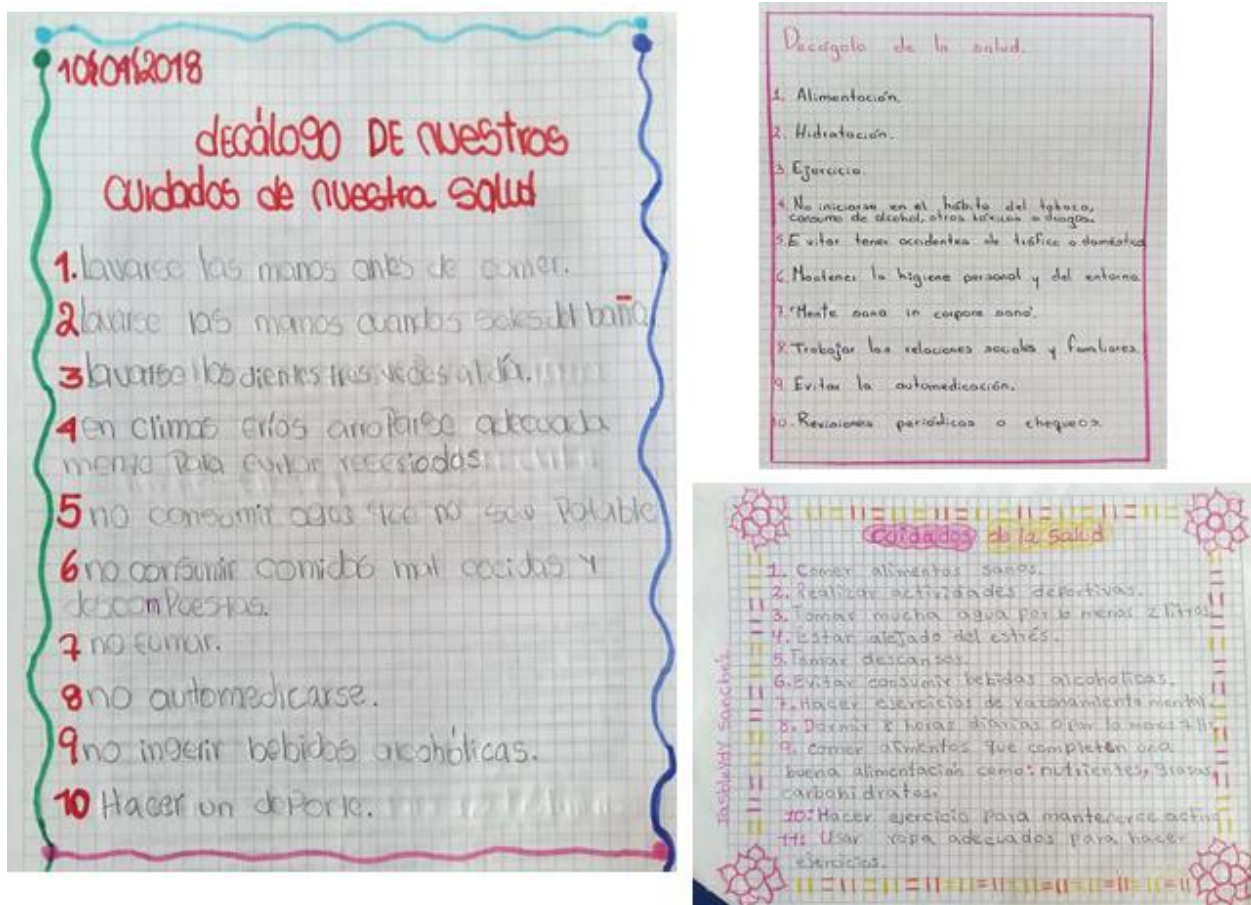 10/01/2018
dECáloGO DE nuestros
Cuidados de nuestra Salud
1. Lavarse las manos antes de comer.
2 lavarse las manos cuandos sales del baño
3 lavarse los dientes tres veces al día.
4 en climas fríos arroparse adecuada
mente para evitar resfriados.
5 no consumir agua que no sea Potable
6 no consumir comidas mal cocidas y
descompuestas.
7 no fumar.
8 no automedicarse.
9 no ingerir bebidas alcohólicas.
10 Hacer un dePorte.
Decágolo de la salud.
1. Alimentación.
2. Hidratación.
3. Ejercicio.
4. No iniciarse en el hábito del tabaco,
consumo de alcohol, otros tóxicos o drogas.
5. Evitar tener accidentes de tráfico o doméstico
6. Mantener la higiene personal y del entorno
7. "Mente sana in corpore sano".
8. Trabajar las relaciones sociales y familiares.
9. Evitar la automedicación.
10. Revisiones periódicas o chequeos.
Cuidados de la Salud
1. Comer alimentos sanos.
2. Realizar actividades deportivas.
3. Tomar mucha agua por lo menos 2 litros
4. Estar alejado del estrés.
5. Tomar descansos.
6. Evitar consumir bebidas alcoholicas.
7. Hacer ejercicios de razonamiento mental.
8. Dormir 8 horas diarias o por lo
9. Comer alimentos que completen una
buena alimentación como: nutrientes, grasas,
carbohidratos.
10: Hacer ejercicio para mantenerse activo
11: Usar ropa adecuados para hacer
ejercicios.
Sanchez